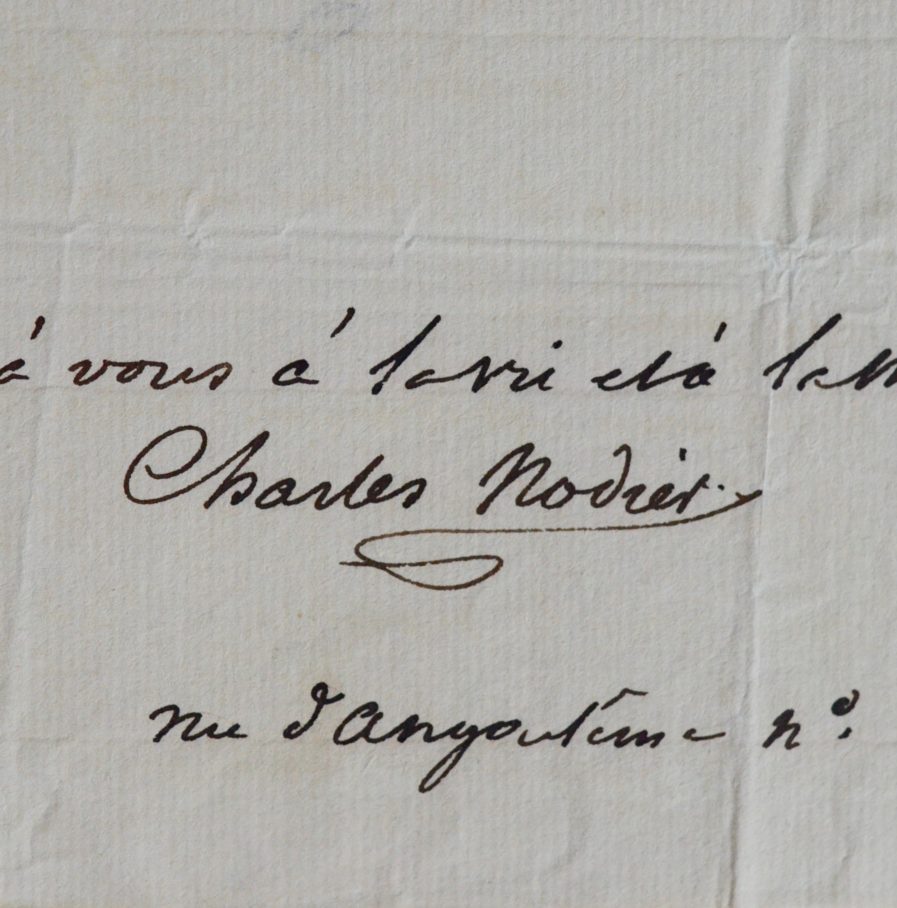 à vous à la vie et à la m
Charles Nodier
rue d'angoulême n°.